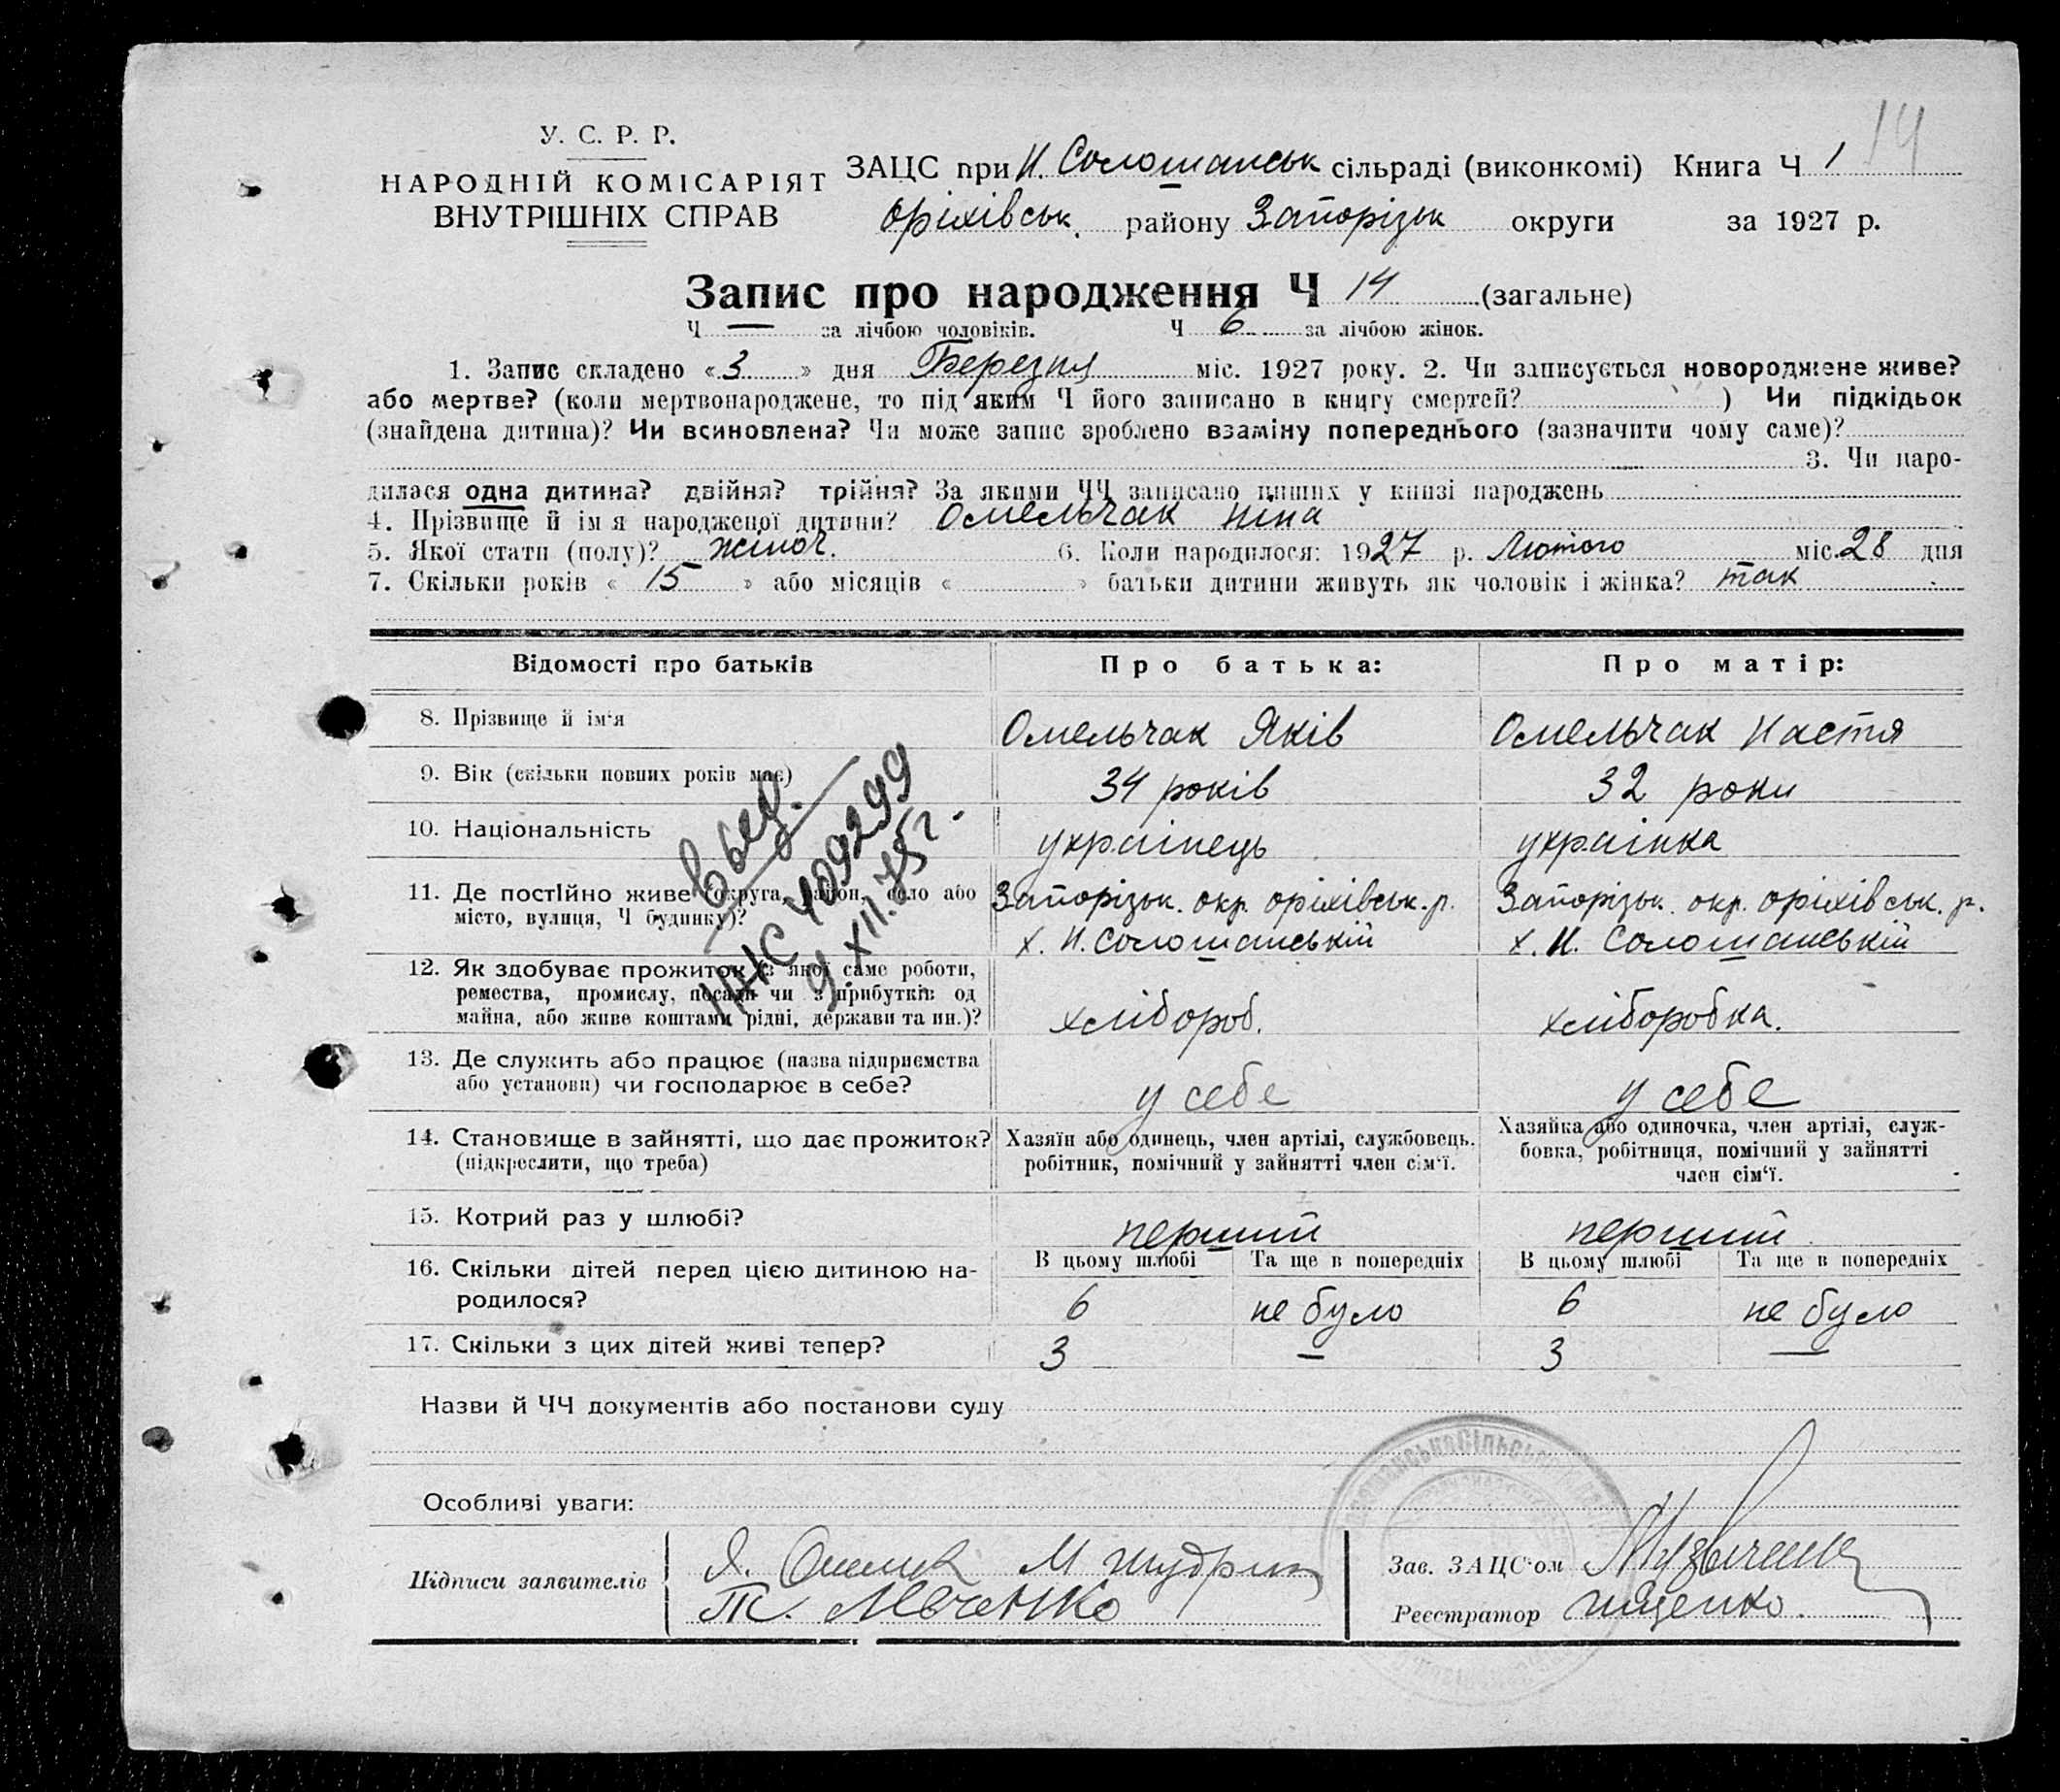 14
У. С. Р. Р.
НАРОДНІЙ КОМІСАРІЯТ
ВНУТРІШНІХ СПРАВ
ЗАЦС при Н. Солошанськ сільраді (виконкомі) Книга Ч 1
Оріхівськ. району Запорізьк округи за 1927 р.
Запис про народження Ч 14 (загальне)
Ч — за лічбою чоловіків. Ч 6 за лічбою жінок.
1. Запис складено «3» дня Березня міс. 1927 року. 2. Чи записується новороджене живе?
або мертве? (коли мертвонароджене, то під яким Ч його записано в книгу смертей? ) Чи підкідьок
(знайдена дитина)? Чи всиновлена? Чи може запис зроблено взаміну попереднього (зазначити чому саме)?
3. Чи наро-
дилася одна дитина? двійня? трійня? За якими ЧЧ записано інших у книзі народжень
4. Прізвище й ім я народженої дитини? Омельчак Ніна
5. Якої стати (полу)? жіноч. 6. Коли народилося: 1927 р. Лютого міс. 28 дня
7. Скільки років « 15 » або місяців « » батьки дитини живуть як чоловік і жінка? так
Відомості про батьків Про батька: Про матір:
8. Прізвище й ім'я Омельчак Яків Омельчак Настя
9. Вік (скільки повних років має) 34 років 32 роки
10. Національність українець українка
11. Де постійно живе (округа, район, село або
місто, вулиця, Ч будинку)?
Запорізьк. окр. Оріхівськ. р.
х. Н. Солошанській
Запорізьк. окр. Оріхівськ. р.
х. Н. Солошанській
12. Як здобуває прожиток (з якої саме роботи,
ремества, промислу, посади чи з прибутків од
майна, або живе коштами рідні, держави та ин.)?
хлібороб. хліборобка.
13. Де служить або працює (назва підприємства
або установи) чи господарює в себе?
у себе у себе
14. Становище в зайнятті, що дає прожиток?
(підкреслити, що треба)
Хазяїн або одинець, член артілі, службовець.
робітник, помічний у зайнятті член сім'ї.
Хазяйка або одиночка, член артілі, служ-
бовка, робітниця, помічний у зайнятті
член сім'ї.
15. Котрий раз у шлюбі? перший перший
16. Скільки дітей перед цією дитиною на-
родилося?
В цьому шлюбі Та ще в попередніх В цьому шлюбі Та ще в попередніх
6 не було 6 не було
17. Скільки з цих дітей живі тепер? 3 — 3 —
409299
9 XII.75г.
Назви й ЧЧ документів або постанови суду
Особливі уваги:
Підписи заявителів
Зав. ЗАЦС'ом
Реєстратор